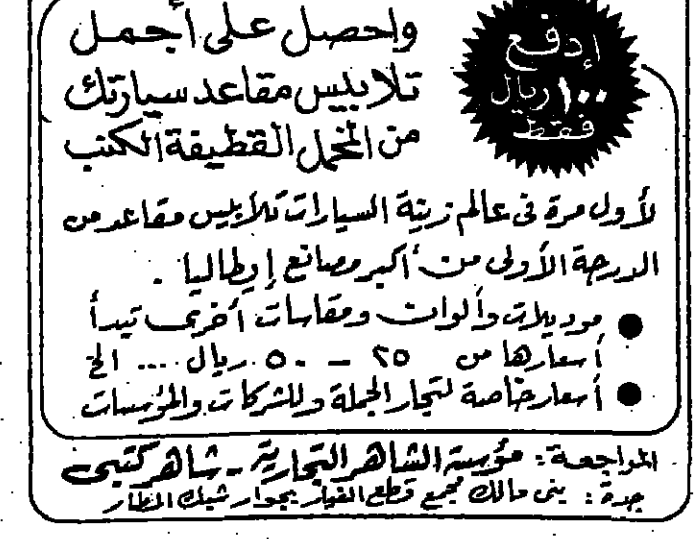 إدفع
١٠٠ ريال
فقط
واحصل على أجمل
تلابيس مقاعد سيارتك
من المخمل القطيفة الكنب
لأول مرة فى عالم زينة السيارات تلابيس مقاعد من
الدرجة الأولى من أكبر مصانع إيطاليا .
● موديلات وألوان ومقاسات أخرى تبدأ
أسعارها من ٢٥ - ٥٠ ريال .... الخ
● أسعار خاصة لتجار الجملة وللشركات والمؤسسات
المراجعة : مؤسسة الشاهر التجارية - شاهر كتبى
جدة : بنى مالك مجمع قطع الغيار بجوار شبك المطار